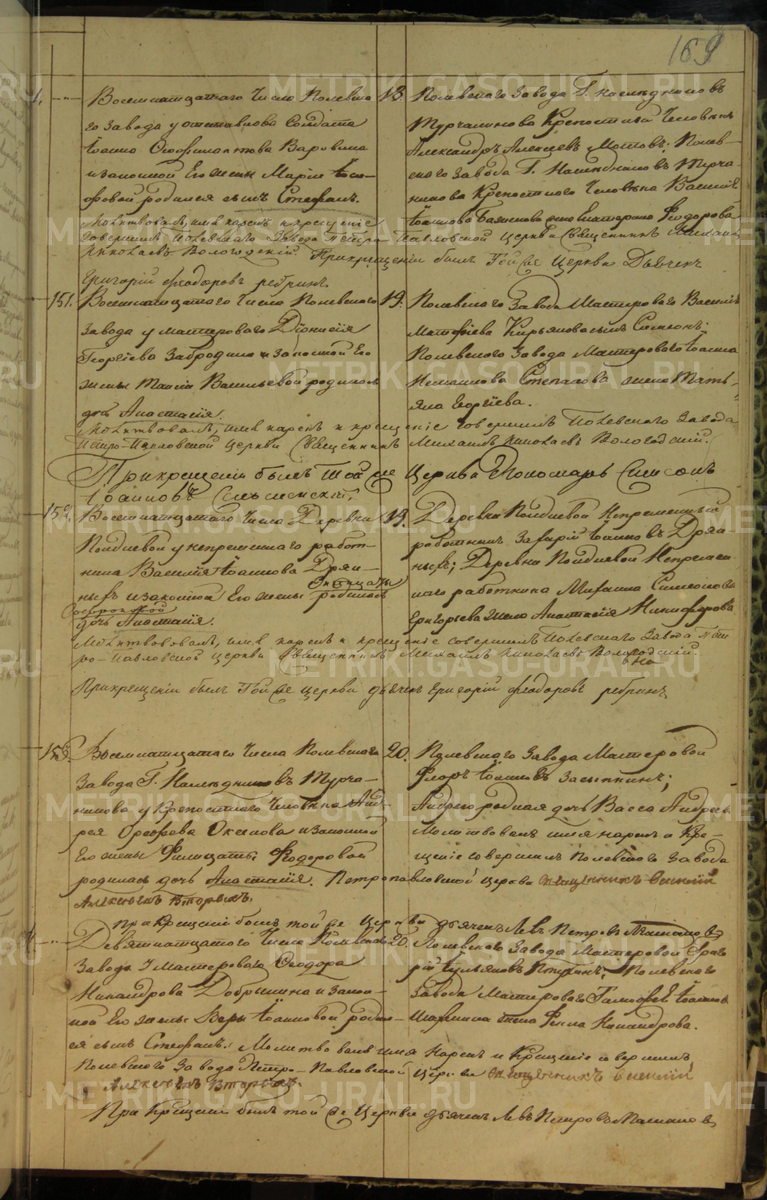 169
Восемнатцатаго Числа Полевска
го завода у отставнова Солдата
Iоанна
и законной Его жены Марiи
родился сынъ Стефанъ.
18. Полевскаго Завода Г. наследниковъ
Турчанинова Крепостный Человекъ
Александръ Алексеевъ Полев-
скаго Завода Г. Наследниковъ Турча-
нинова Крепостнаго Человека Василiя
Iоаннова жена Екатерина Феодорова
Молитвовалъ, имя нарекъ и крещенiе
совершилъ Полевскаго Завода Петро Павловской Церкви Священникъ Михаилъ
Николаевъ Вологодскiй. При крещенiи былъ Той же Церкви Дьячекъ
Григорiй Феодоровъ Ребринъ
151. Восемнатцатаго Числа Полевскаго
завода у мастероваго Дiонисiя
Георгiева Забродина и законной Его
жены Васильевой родилась
дочь Анастасiя.
19. Полевскаго Завода Мастероваго Василiя
Матфiева Кирьянова сынъ
Полевскаго Завода Мастероваго Iоанна
Степанова жена Тать-
яна Георгiева.
Молитвовалъ, имя нарекъ и крещенiе совершилъ Полевскаго Завода
Петро-Павловской Церкви Священникъ Михаилъ Николаевъ Вологодскiй.
При крещенiи былъ той же Церкви Пономарь Симеонъ
Iоанновъ Смоленскiй
152. Восемнатцатаго Числа Деревни
Полдневой у непременнаго работ-
ника Василiя Iоаннова
и законной Его жены родилась
дочь Анастасiя.
19. Деревни Полдневой Непременный
работникъ Захарiй Iоанновъ
Деревни Полдневой Непремен
наго работника Михаила Симеонова
Григорьева жена Анастасiя Никифорова
Молитвовалъ, имя нарекъ и крещенiе совершилъ Полевскаго Завода Пет
ро-Павловской Церкви Священникъ Михаилъ Николаевъ Вологодскiй.
При крещенiи былъ Той же Церкви дьячекъ Григорiй Феодоровъ Ребринъ
153. Восемнатцатаго Числа Полевскаго
завода Г. Наследниковъ Турча-
нинова у Крепостнаго Человека Анд-
рея и законной
Его жены Филицаты Феодоровой
родилась дочь Анастасiя.
20. Полевскаго Завода Мастеровой
Iоанновъ Засыпкинъ;
Андрея родная дочь Васса Андреева
Молитвовалъ имя нарекъ и Кре-
щенiе совершилъ Полевскаго Завода
Петропавловской Церкви Священникъ
Алексей Вторыхъ.
При Крещенiи былъ той же Церкви дьячекъ Левъ Петровъ
Девятнатцатаго Числа Полевскаго
Завода У Мастероваго Феодора
Никандрова Добрынина и закон-
ной Его жены Веры Iоанновой роди-
лся сынъ Стефанъ.
20. Полевскаго Завода Мастеровой
Полевскаго
Завода Мастероваго Тимофея Iоаннова
жена Фекла Никандрова.
Молитвовалъ имя Нарекъ и Крещенiе совершилъ
Полевскаго Завода Петро-Павловской Церкви Священникъ
Алексей Вторыхъ.
При Крещенiи былъ той же Церкви дьячекъ Левъ Петровъ
METRIKI.GASO-URAL.RU